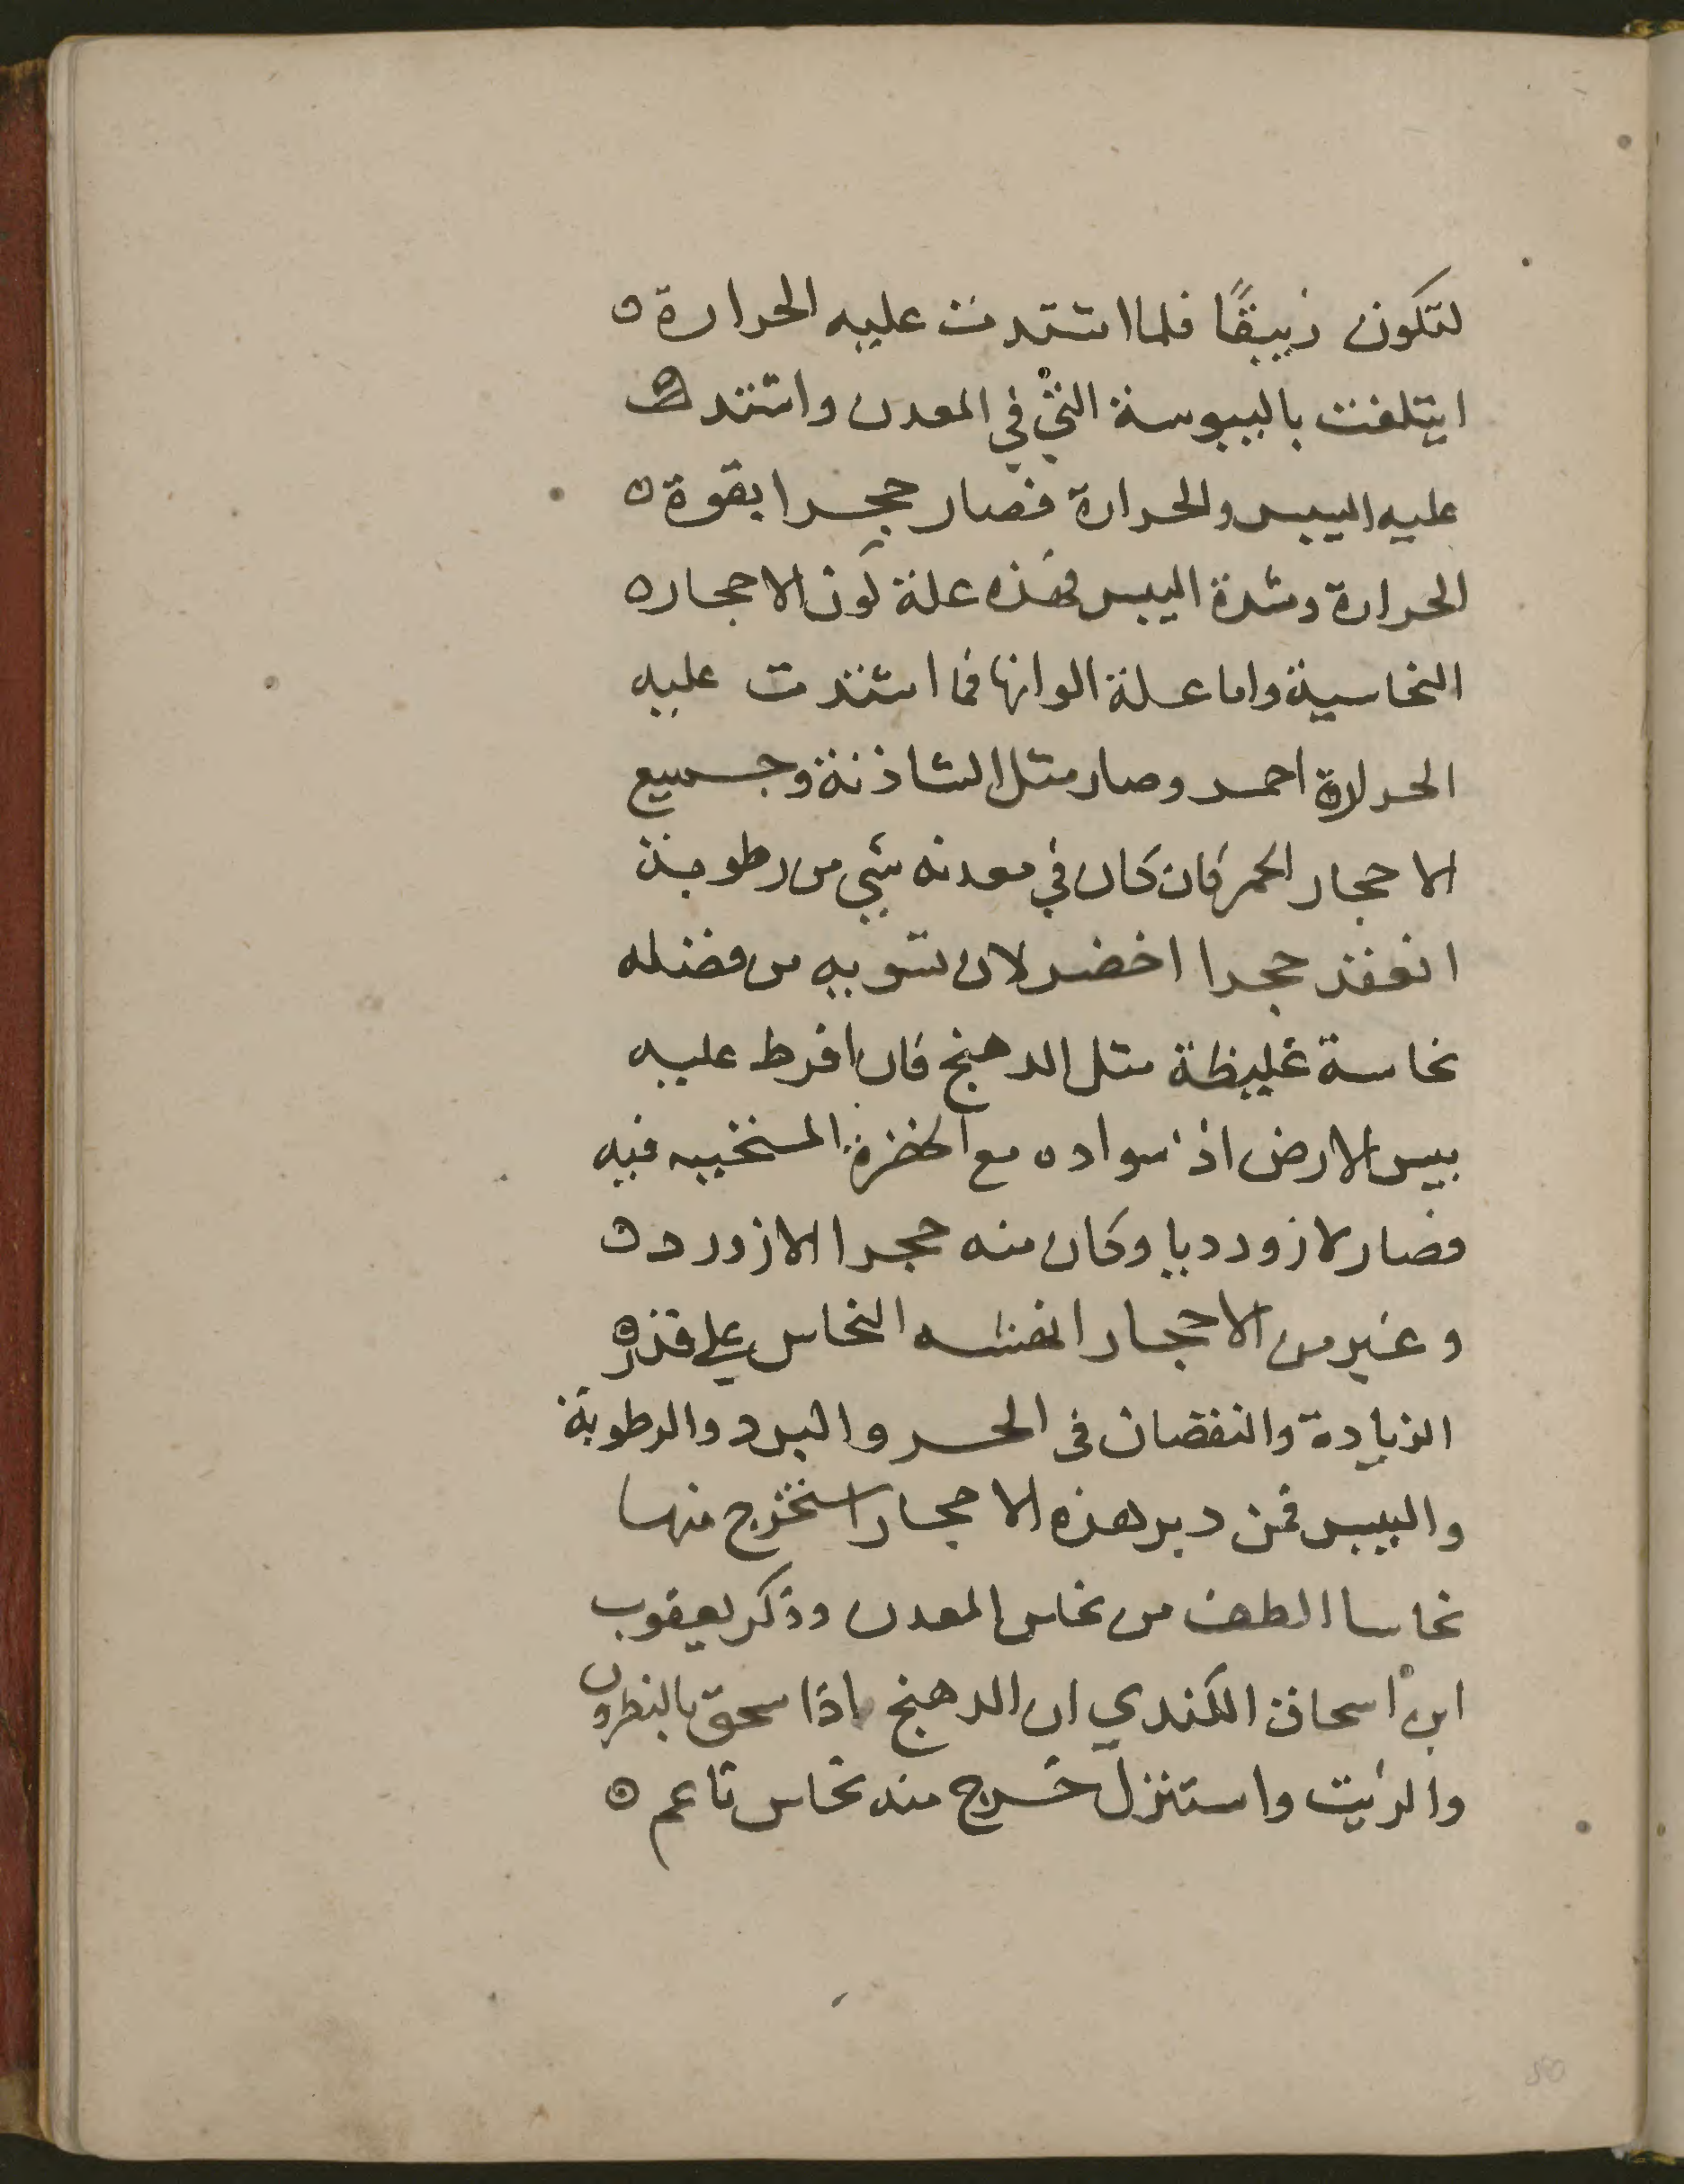 لتكون زيبقًا فلما اشتدت عليه الحرارة
ايتلفت باليبوسة التي في المعدن واشتدت
عليه اليبس والحرارة فصار حجرا بقوة
الحرارة وشدة اليبس فهذه علة كون الاحجار
النحاسية واما علة الوانها فما اشتدت عليه
الحرارة احمر وصار مثل الشاذنة وجميع
الاحجار الحمر فان كان في معدنه شي من رطوبة
انعقد حجرا اخضر لان تشويه من فضله
نحاسة غليظة مثل الدهنج فان افرط عليه
يبس الارض اذ سواده مع الخضرة المستخبيه فيه
فصار لازورديا وكان منه حجرا الازورد
وغير من الاحجار النحاس علي قدر
الزيادة والنقصان فى الحر والبرد والرطوبة
واليبس فمن دبر هذه الاحجار استخرج منها
نحاسا الطف من نحاس المعدن وذكر يعقوب
ابن اسحاق الكندي ان الدهنج اذا سحق بالنطرون
والزيت واستنزل خرج منه نحاس ناعم